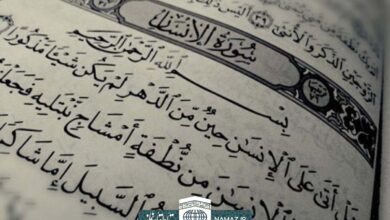 الزَّوْجَيْنِ الذَّكَرَ وَالْأُنثَىٰ
سُورَةُ الْإِنْسَانِ
بِسْمِ اللَّهِ الرَّحْمَٰنِ الرَّحِيمِ
أَتَىٰ عَلَى الْإِنسَانِ حِينٌ مِّنَ الدَّهْرِ لَمْ يَكُن شَيْئًا مَّذْكُورًا
الْإِنسَانَ مِن نُّطْفَةٍ أَمْشَاجٍ نَّبْتَلِيهِ فَجَعَلْنَاهُ
السَّبِيلَ إِمَّا شَاكِرًا
NAMAZ.IR